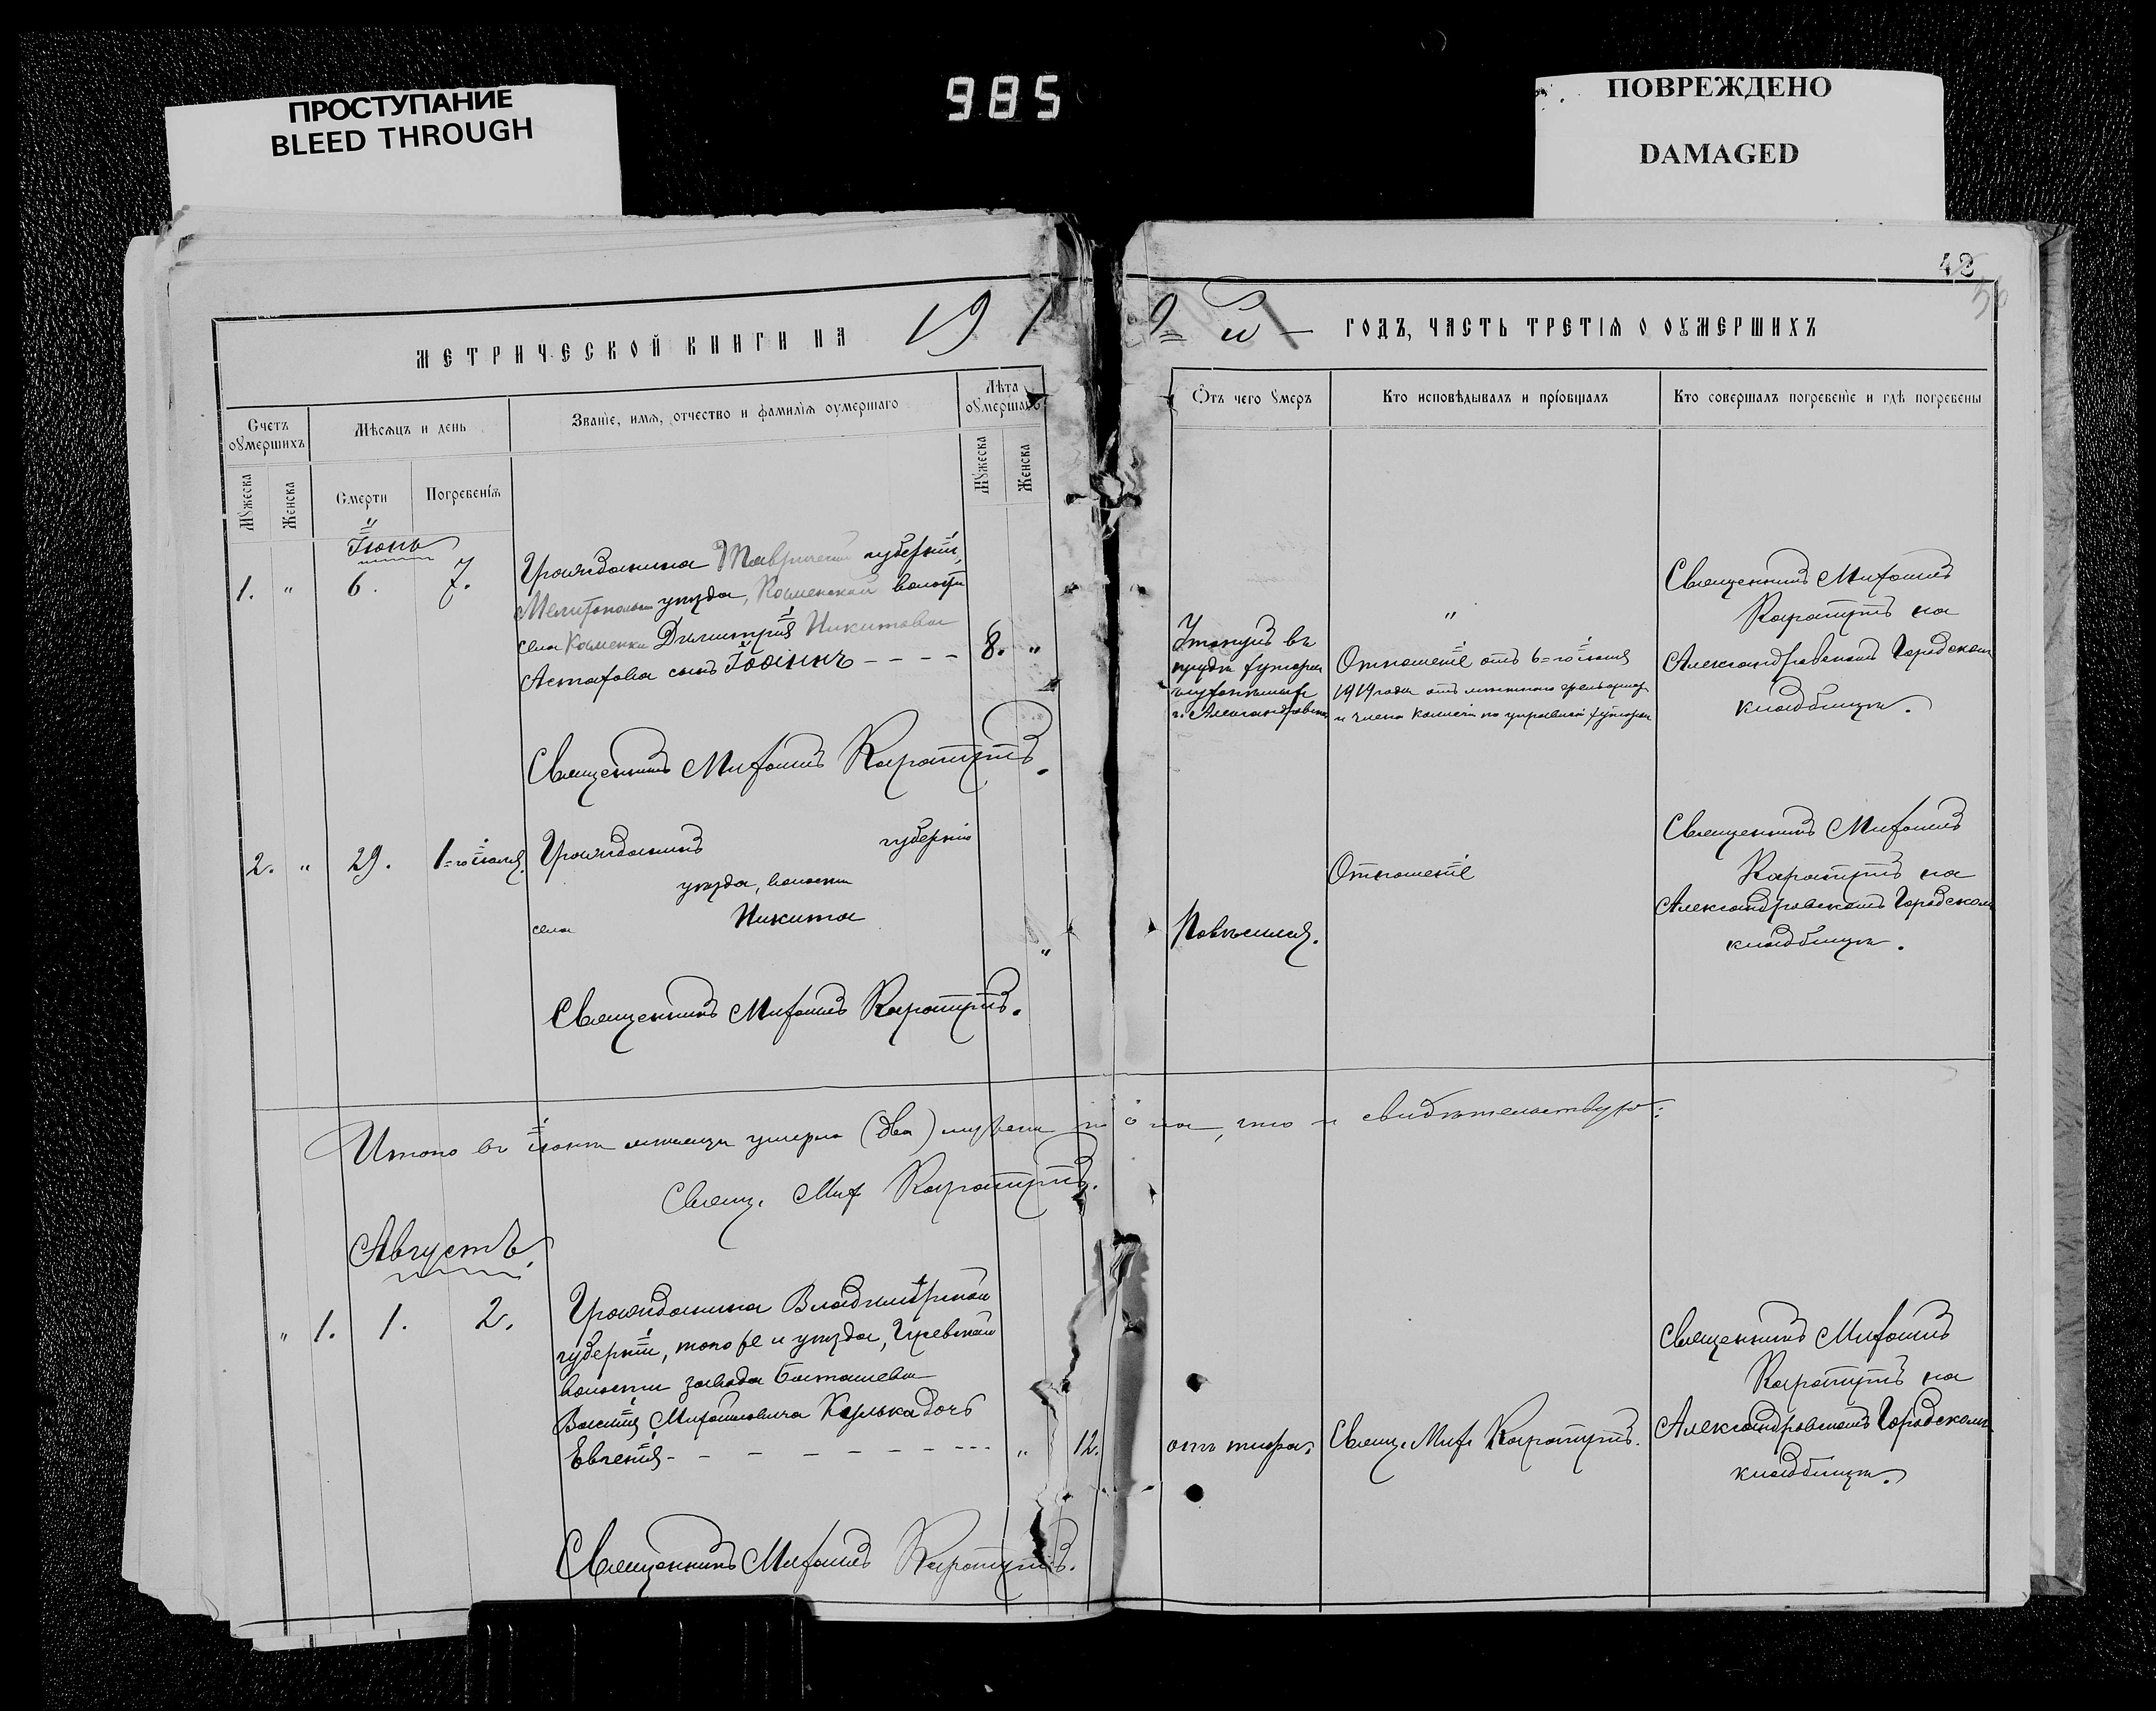 ПРОСТУПАНИЕ
BLEED THROUGH
985
ПОВРЕЖДЕНО
DAMAGED
48
МЕТРИЧЕСКОЙ КНИГИ НА 191
Счетъ оумершихъ
Мѣсяцъ и день
Званіе, имя, отчество и фамилія оумершаго
Лѣта оумершаго
Мужеска
Женска
Смерти
Погребенія
Мужеска
Женска
9=й ГОДЪ, ЧАСТЬ ТРЕТІЯ О ОУМЕРШИХЪ
Отъ чего умеръ
Кто исповѣдывалъ и пріобщалъ
Кто совершалъ погребеніе и гдѣ погребены
Іюнь
1. " 6. 7.
Гражданина Таврической губерніи,
Мелитопольск уѣзда, Каменской волости
села Каменки Димитрія Никитова
Астафова сынъ Іоаннъ - - - - 8. "
Утонулъ въ
прудѣ хутора
г. Александровска
"
Отношеніе отъ 6=го іюня
1919 года отъ
и члена коллегіи по управленію хутора
Священникъ Михаилъ
Каратутъ на
Александровскомъ Городскомъ
кладбищѣ.
Священникъ Михаилъ Каратутъ.
2. " 29. 1=го іюля.
Гражданинъ губерніи
уѣзда, волости
села Никита
"
Повѣсился.
Отношеніе
Священникъ Михаилъ
Каратутъ на
Александровскомъ Городскомъ
кладбищѣ.
Священникъ Михаилъ Каратутъ.
Итого въ іюнѣ мѣсяцѣ умерло (два) мужеска пола, что и свидѣтельствую:
Свящ. Мих Каратутъ.
Августъ.
" 1. 1. 2.
Гражданина Владимірской
губерніи, того же и уѣзда, Гусевской
волости завода Баташева
Василія Михайловича Карлька дочь
Евгенія - - - - - - - " 12.
отъ тифа.
Свящ. Мих. Каратутъ.
Священникъ Михаилъ
Каратутъ на
Александровскомъ Городскомъ
кладбищѣ.
Священникъ Михаилъ Каратутъ.